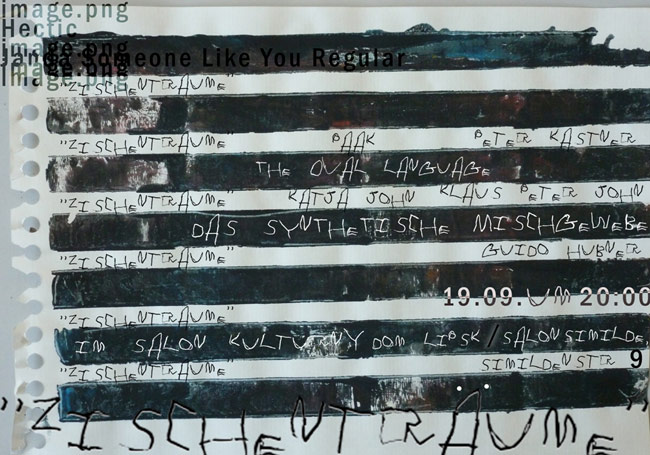 image.png
Hectic
image.png
Janda Someone Like You Regular
image.png
"ZISCHeNTRÄUMe"
"ZISCHeNTRÄUMe" PAAK PeTeR KASTNeR
THe OVAL LANGUAGe
"ZISCHeNTRÄUMe" KATJA JOHN KLAUS PeTeR JOHN
DAS SYNTHeTISCHe MISCHGeWeBe
"ZISCHeNTRÄUMe" GUIDO HUBNeR
19.09. UM 20:00
"ZISCHeNTRÄUMe"
IM SALON KULTURNY DOM LIPSK / SALON SIMILDe
"ZISCHeNTRÄUMe" SIMILDeNSTR 9
"ZISCHeNTRÄUMe"